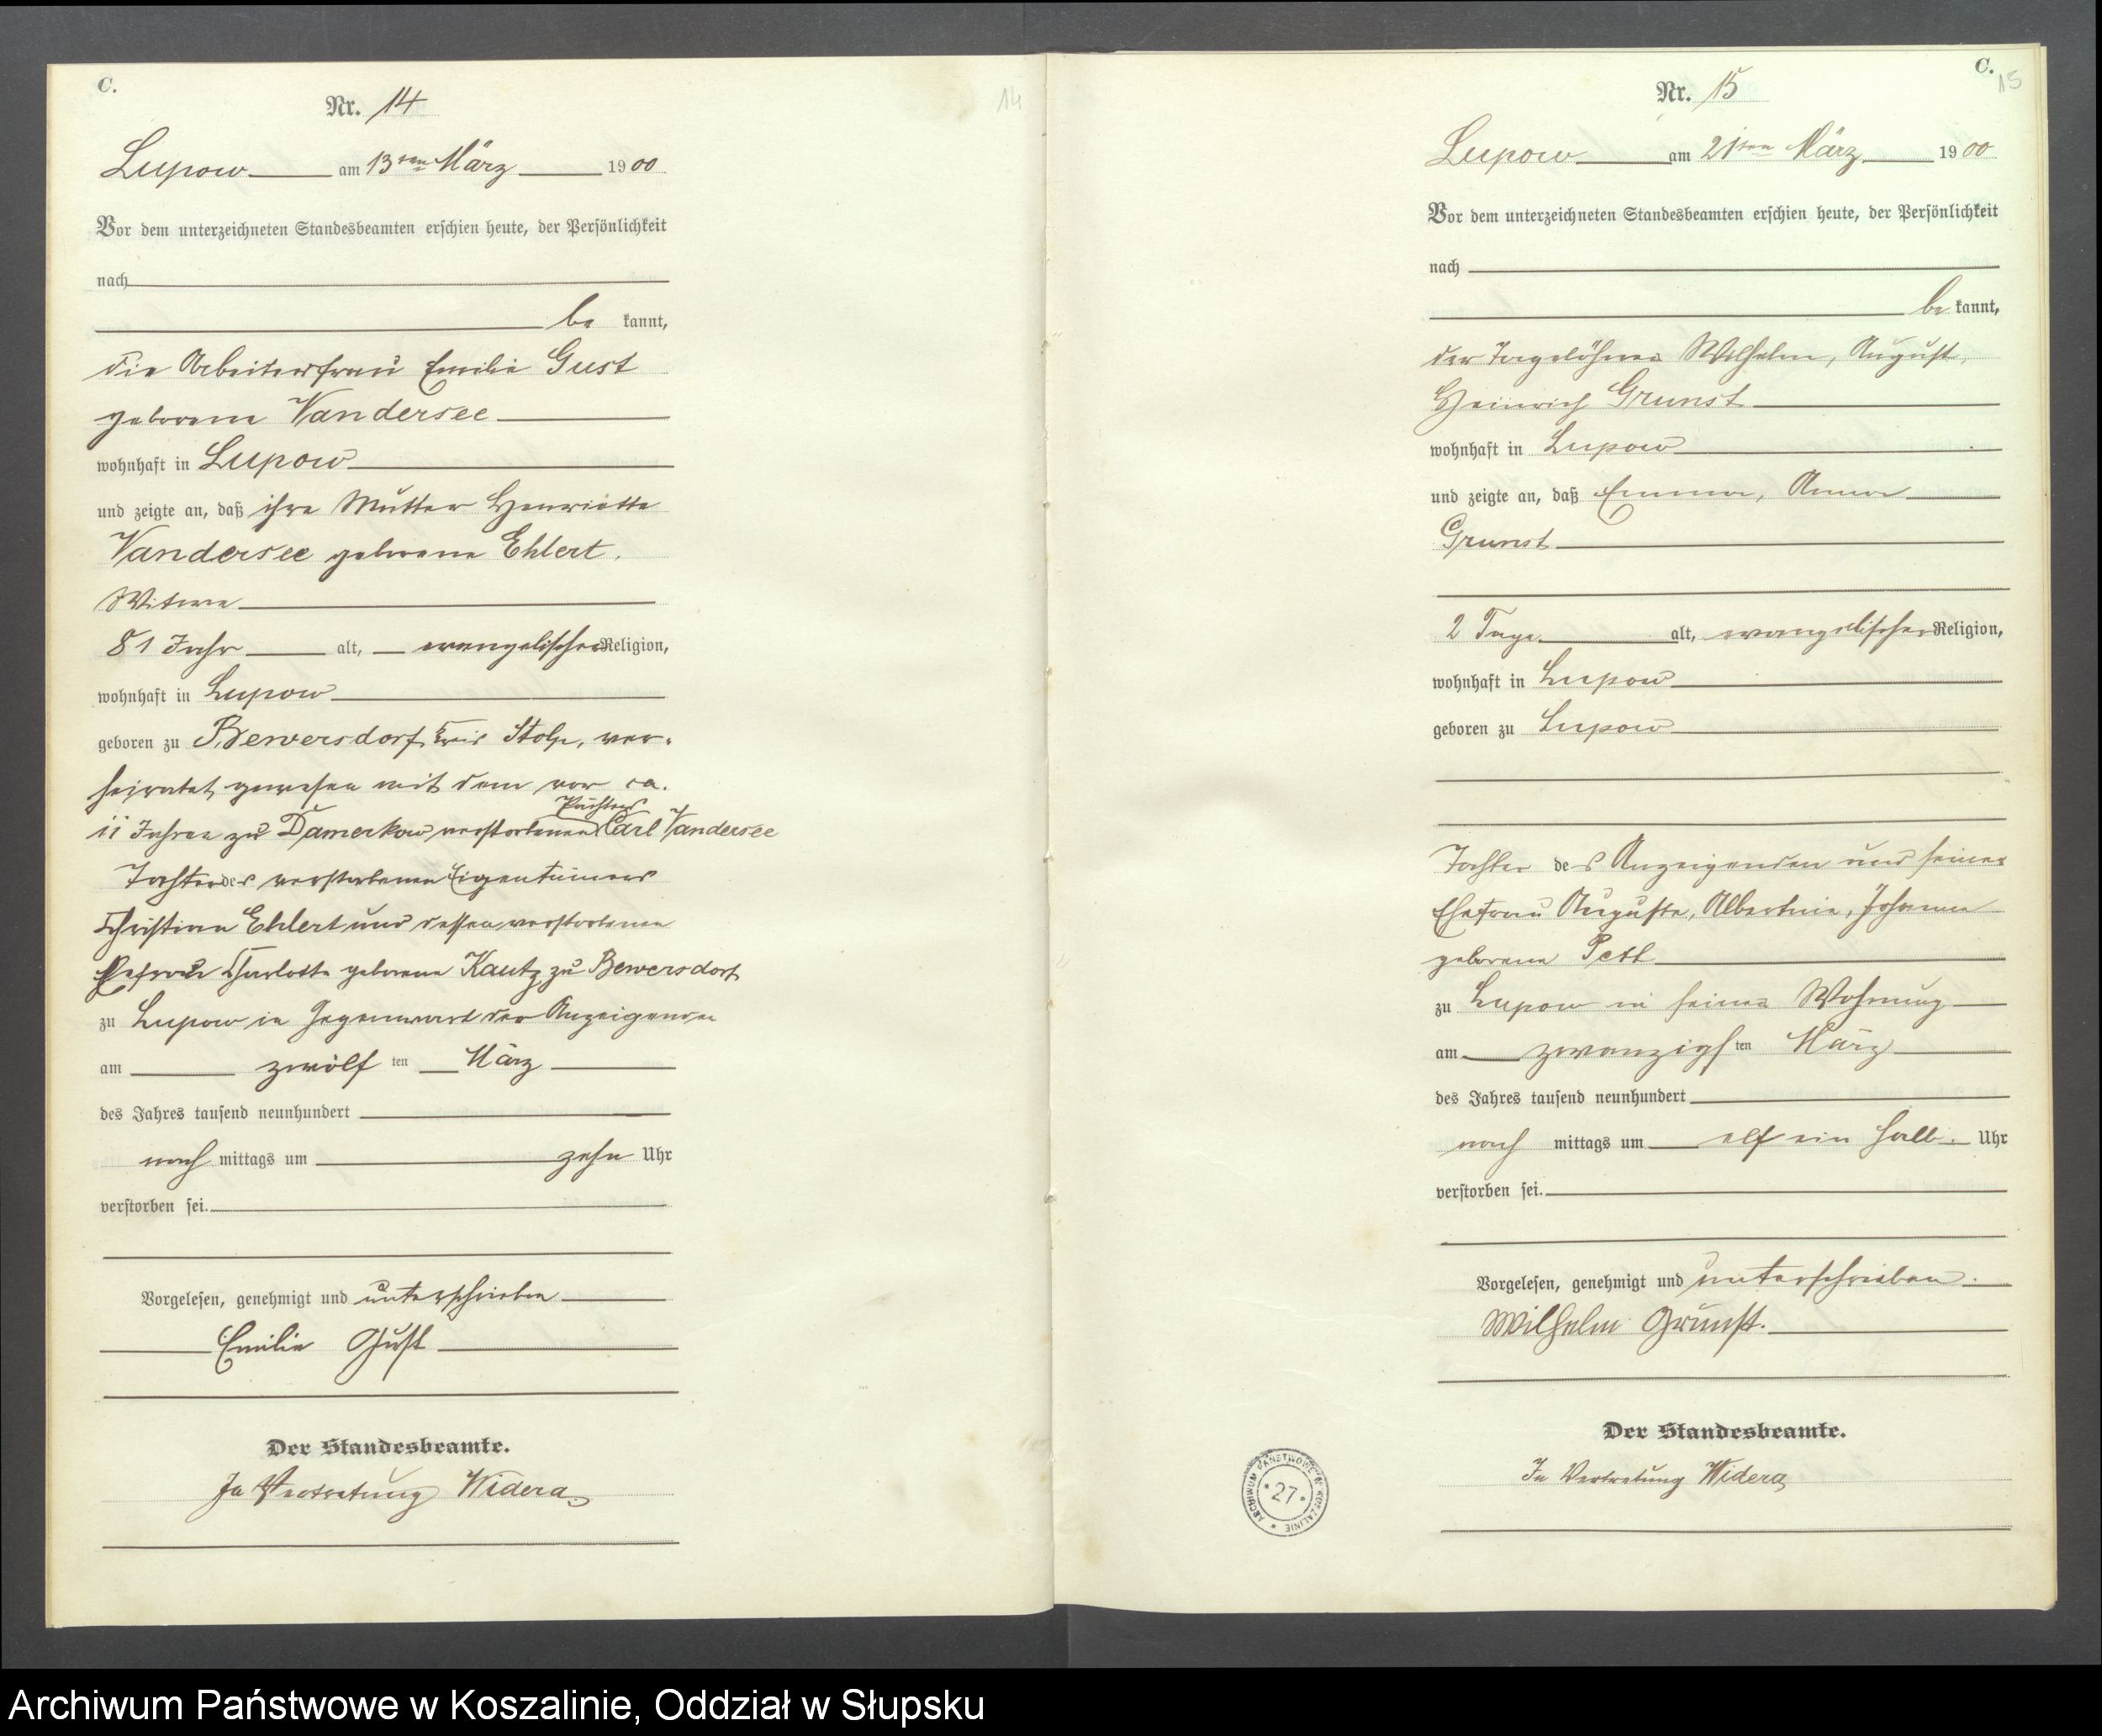 C.
Nr. 14
14
Lupow am 13ten März 1900
Vor dem unterzeichneten Standesbeamten erschien heute, der Persönlichkeit
nach
be kannt,
die Arbeiterfrau Emilie Gust
geborene Vandersee
wohnhaft in Lupow
und zeigte an, daß ihre Mutter Henriette
Vandersee geborene Ehlert,
Witwe
81 Jahr alt, evangelischer Religion,
wohnhaft in Lupow
geboren zu Bewersdorf Kreis Stolp, ver-
heiratet gewesen mit dem vor ca.
11 Jahren zu Damerkow verstorbenen Pächter Carl Vandersee
Tochter des verstorbenen Eigentümers
Christian Ehlert und dessen verstorbenen
Ehefrau Charlotte geborene Kautz zu Bewersdorf
zu Lupow in Gegenwart der Anzeigenden
am zwölf ten März
des Jahres tausend neunhundert
nach mittags um zehn Uhr
verstorben sei.
Vorgelesen, genehmigt und unterschrieben
Emilie Gust
Der Standesbeamte.
In Vertretung Widera
C.
15
Nr. 15
Lupow am 21ten März 1900
Vor dem unterzeichneten Standesbeamten erschien heute, der Persönlichkeit
nach
be kannt,
der Tagelöhner Wilhelm, August,
Heinrich Grunst
wohnhaft in Lupow
und zeigte an, daß Emma, Anna
Grunst
2 Tage alt, evangelischer Religion,
wohnhaft in Lupow
geboren zu Lupow
Tochter des Anzeigenden und seiner
Ehefrau Auguste, Albertine, Johanne
geborene
zu Lupow in seiner Wohnung
am zwanzigs ten März
des Jahres tausend neunhundert
nach mittags um elf ein halb Uhr
verstorben sei.
Vorgelesen, genehmigt und unterschrieben.
Wilhelm Grunst.
Der Standesbeamte.
In Vertretung Widera
ARCHIWUM PAŃSTWOWE W KOSZALINIE
* 27 *
Archiwum Państwowe w Koszalinie, Oddział w Słupsku